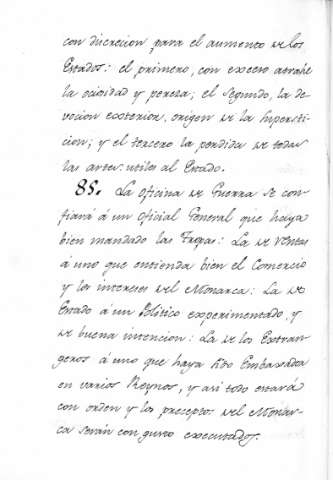 con discrecion para el aumento de los
Estados: el primero, con exceso atrahe
la ociosidad y pereza; el segundo, la de-
vocion exterior, origen de la Supersti-
cion; y el tercero la perdida de todas
las artes utiles al Estado.
85. La oficina de Guerra se con
fiará á un oficial General que haya
bien mandado las Tropas: La de Rentas
á uno que entienda bien el Comercio
y los intereses del Monarca: La de
Estado á un Politico experimentado, y
de buena intencion: La de los Extran-
geros á uno que haya sido Embaxador
en varios Reynos, y asi todo estará
con orden y los preceptos del Monar-
ca serán con gusto executados.